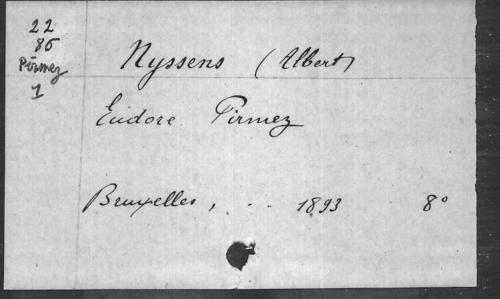 22
86
Pirmez
1
Nyssens (Albert)
Eudore Pirmez
Bruxelles, . . 1893 8°